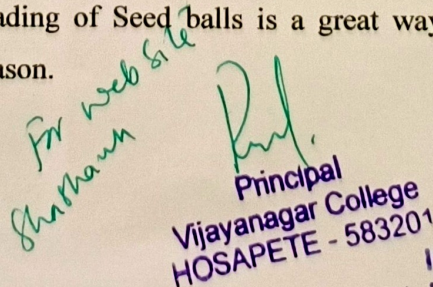 ading of Seed balls is a great way
ason.
For web site
Shashank
Principal
Vijayanagar College
HOSAPETE - 583201